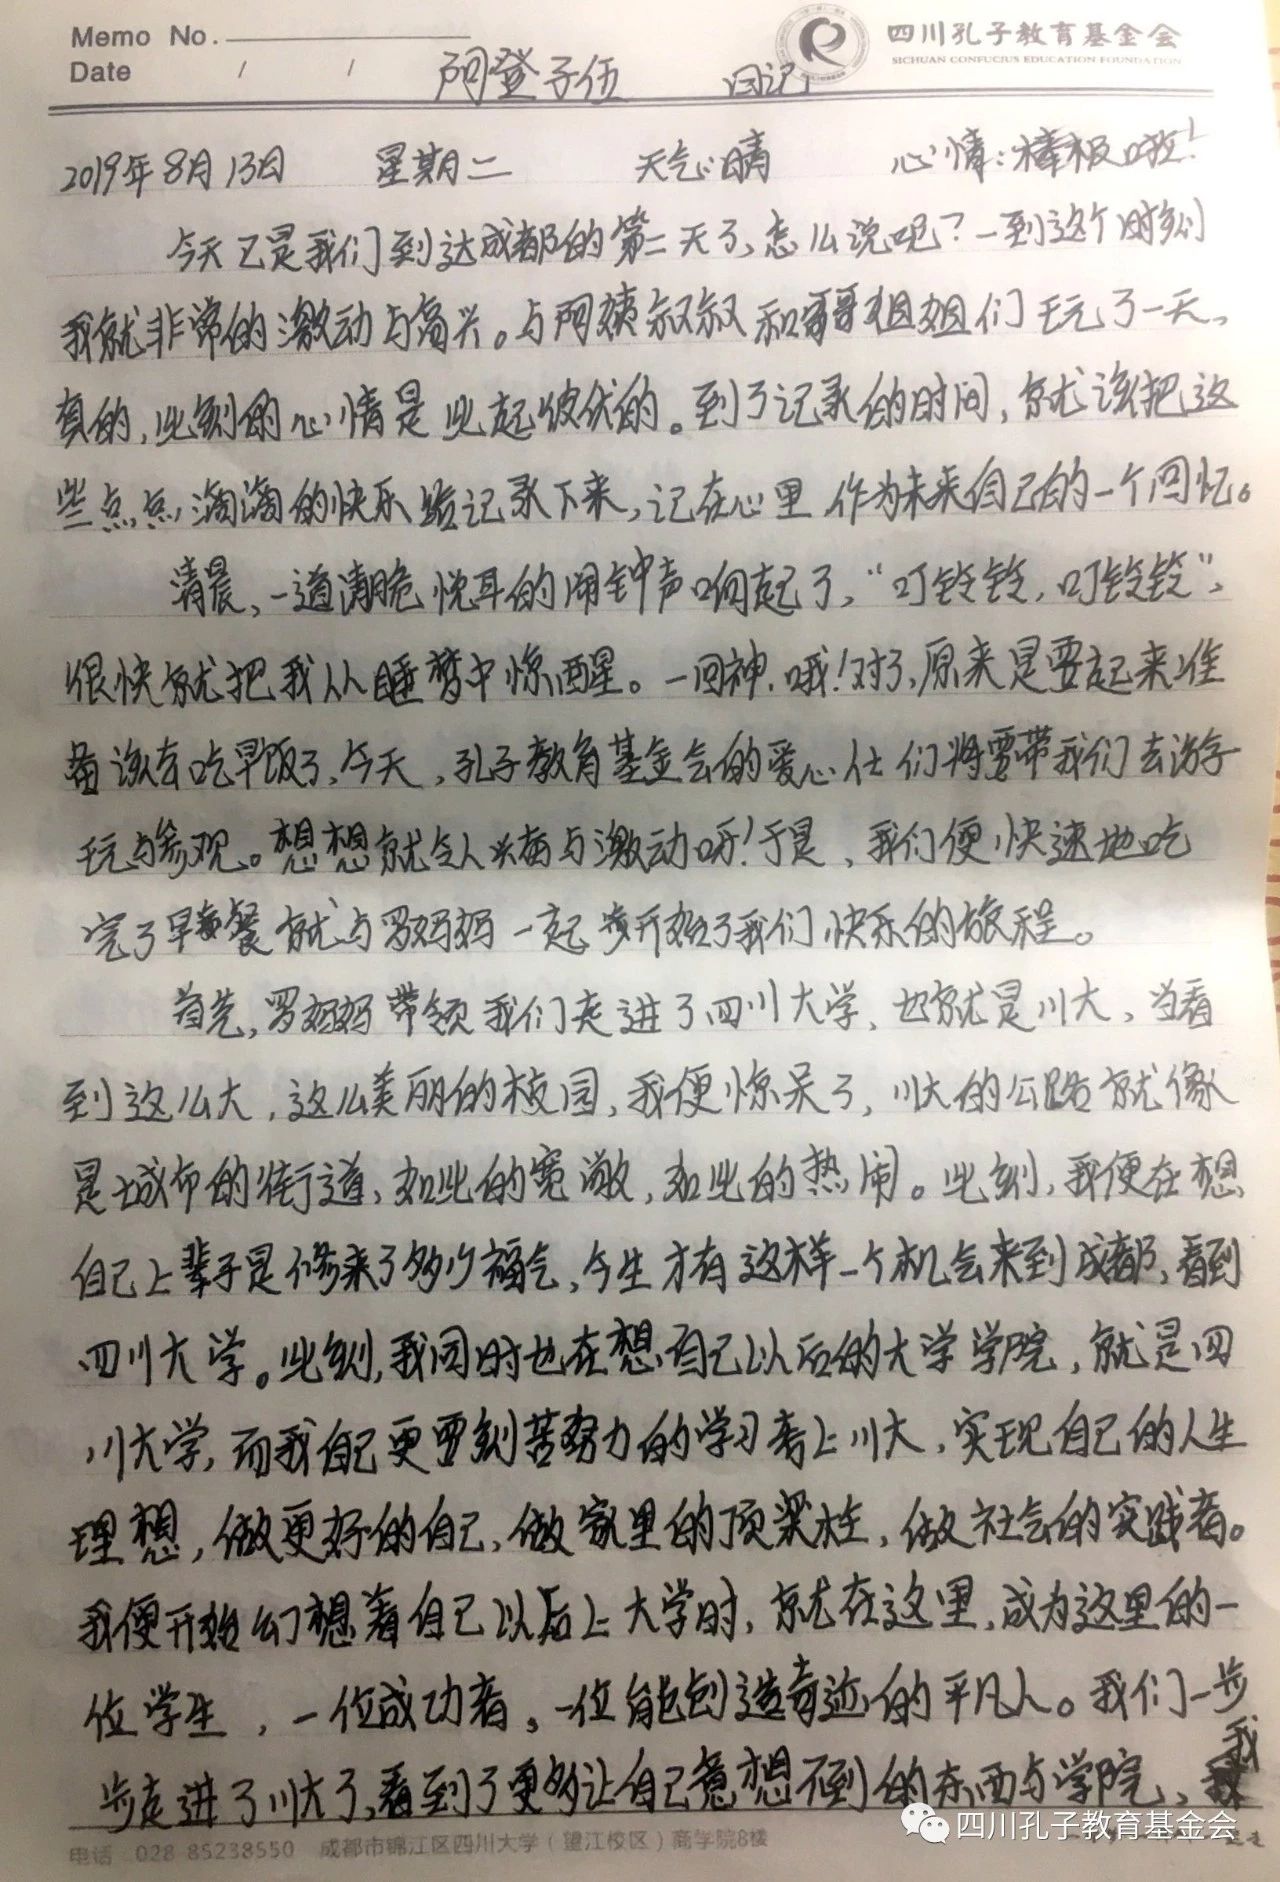 Memo No.
Date / /
四川孔子教育基金会
SICHUAN CONFUCIUS EDUCATION FOUNDATION
阿登子伍 日记
2019年8月13日 星期二 天气:晴 心情:棒极啦!
今天已是我们到达成都的第二天了,怎么说呢?一到这个时刻
我就非常的激动与高兴。与阿姨叔叔和哥哥姐姐们玩了一天,
真的,此刻的心情是此起彼伏的。到了记录的时间,就该把这
些点点滴滴的快乐给记录下来,记在心里作为未来自己的一个回忆。
清晨,一道清脆悦耳的闹钟声响起了,“叮铃铃,叮铃铃”,
很快就把我从睡梦中惊醒。一回神,哦!对了,原来是要起来准
备该去吃早饭了,今天,孔子教育基金会的爱心仕们将要带我们去游
玩与参观。想想就令人兴奋与激动呀!于是,我们便快速地吃
完了早餐就与罗妈妈一起开始了我们快乐的旅程。
首先,罗妈妈带领我们走进了四川大学,也就是川大,当看
到这么大,这么美丽的校园,我便惊呆了,川大的公路就像
是城市的街道,如此的宽敞,如此的热闹。此刻,我便在想
自己上辈子是修来了多少福气,今生才有这样一个机会来到成都,看到
四川大学。此刻,我同时也在想自己以后的大学学院,就是四
川大学,而我自己更要刻苦努力的学习考上川大,实现自己的人生
理想,做更好的自己,做家里的顶梁柱,做社会的实践者。
我便开始幻想着自己以后上大学时,就在这里,成为这里的一
位学生,一位成功者。一位能创造奇迹的平凡人。我们一步
步走进了川大了,看到了更多让自己意想不到的东西与学院,我
电话 028-85238550 成都市锦江区四川大学(望江校区)商学院8楼
四川孔子教育基金会